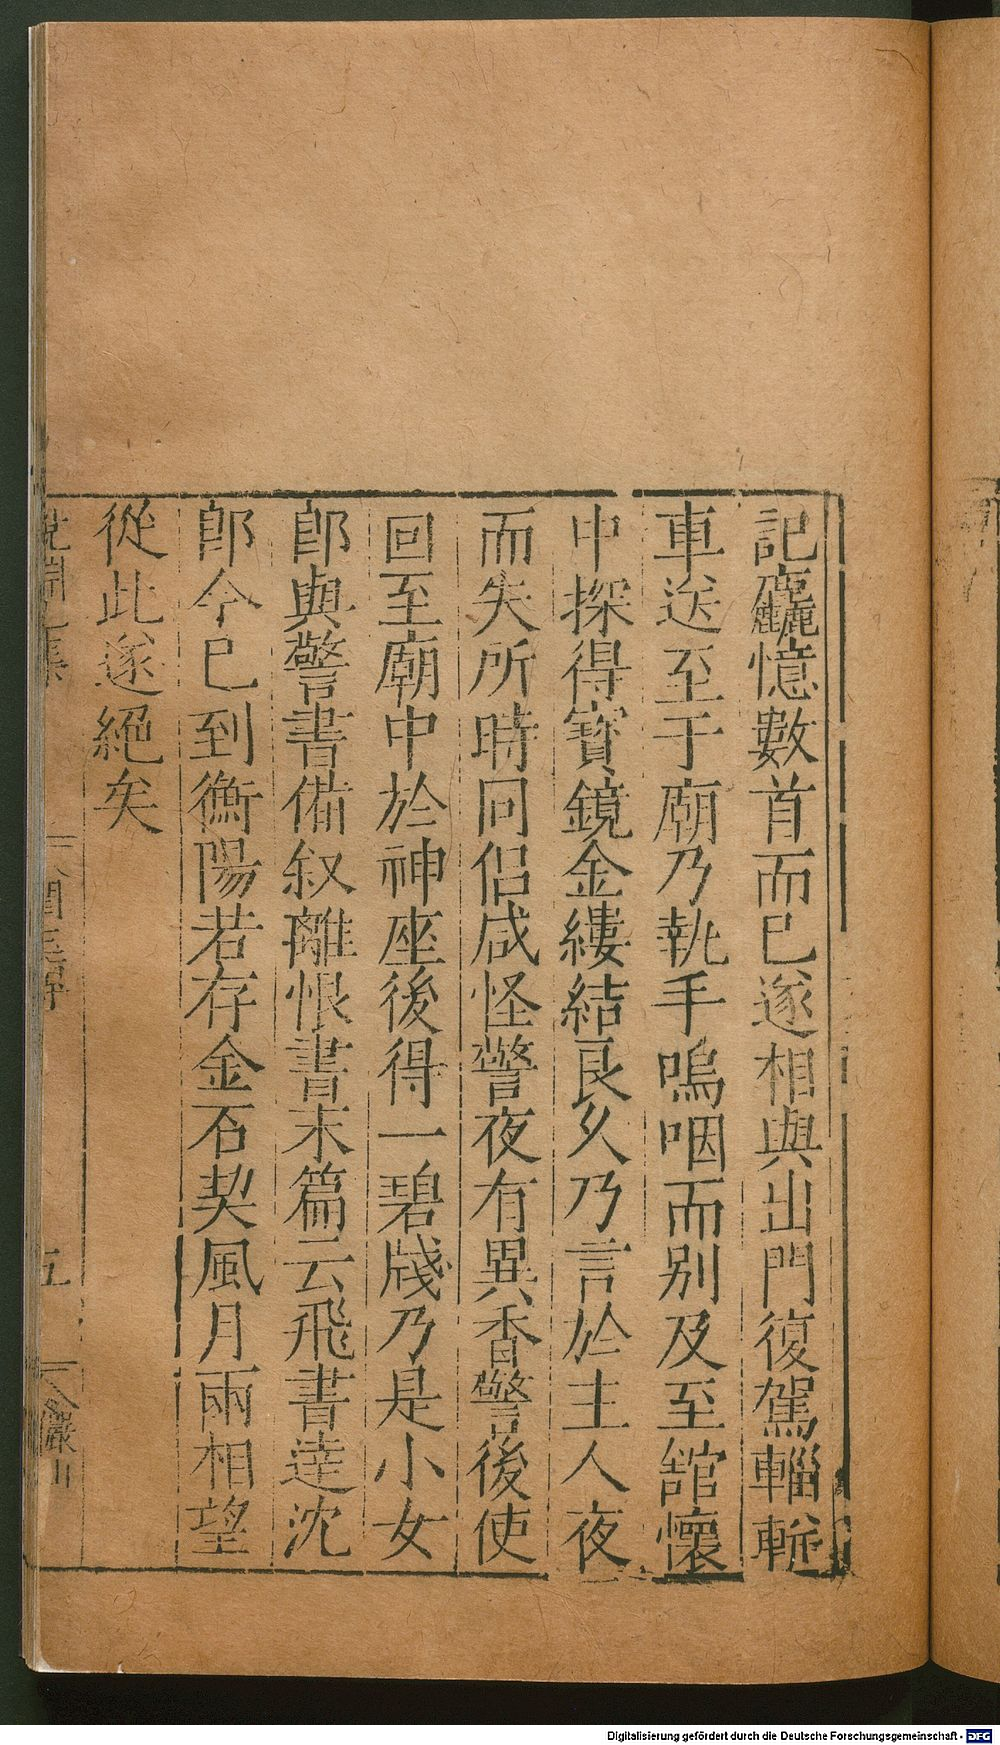 記麤憶數首而已遂相與出門復駕輜軿
車送至于廟乃執手嗚咽而别及至舘懷
中探得寳鏡金縷結良乆乃言於主人夜
而失所時同侣咸怪警夜有異香警後使
回至廟中於神座後得一碧牋乃是小女
郎與警書備叙離恨書末篇云飛書達沈
郎今已到衡陽若存金石契風月兩相望
從此遂絕矣
五
儼山
Digitalisierung gefördert durch die Deutsche Forschungsgemeinschaft - DFG